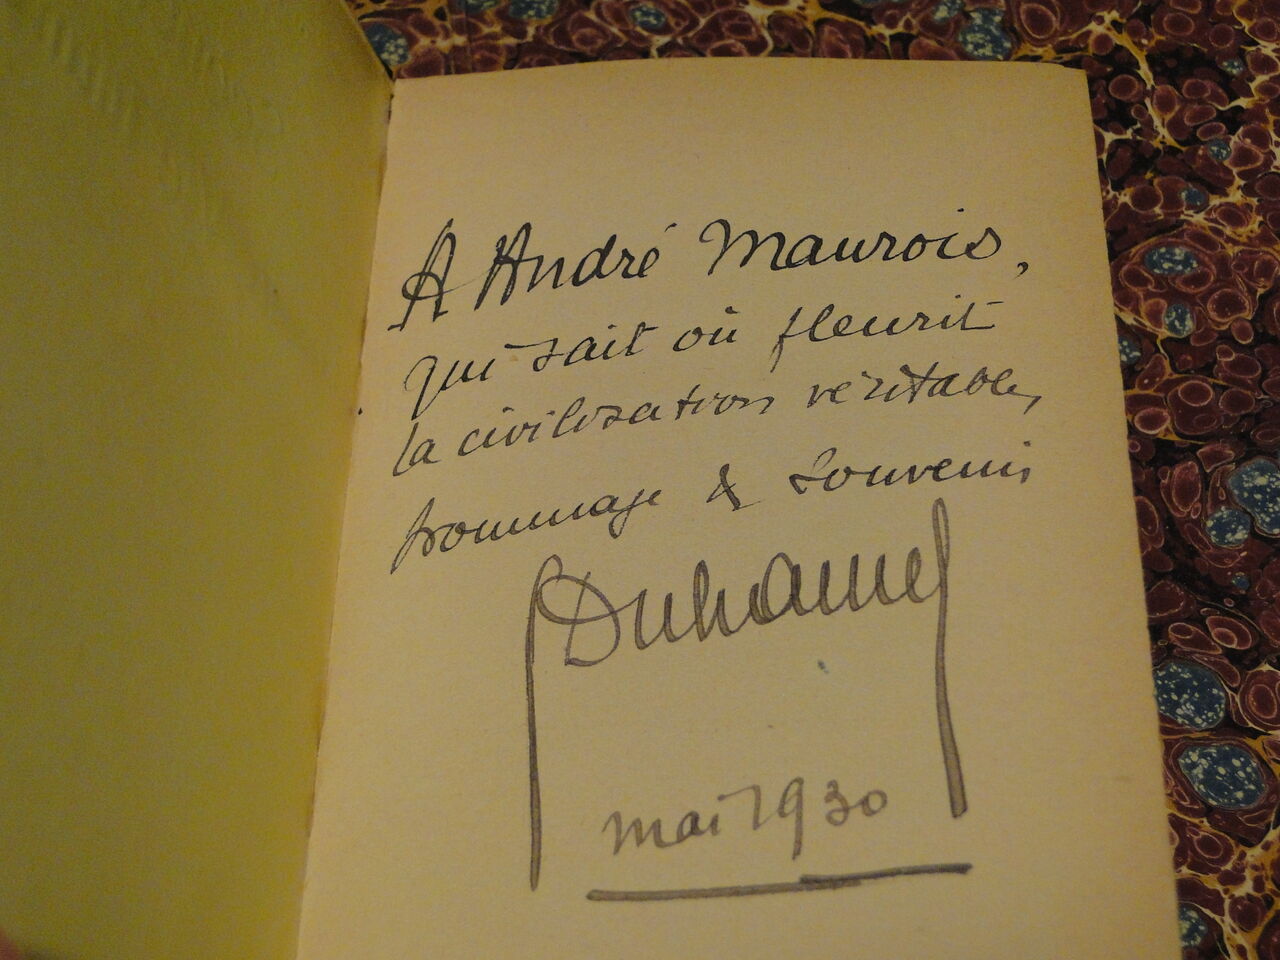 A André Maurois,
qui sait où fleurit
la civilisation véritable,
hommage & souvenir
Duhamel
mai 1930